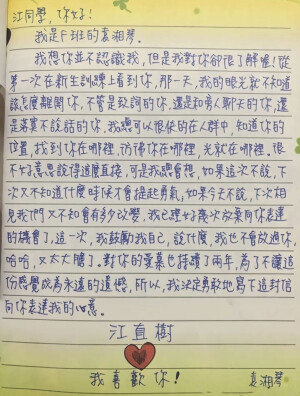 江同學,你好!
我是F班的袁湘琴。
我想你並不認識我,但是我對你卻很了解喔!從
第一次在新生訓練上看到你,那一天,我的眼光就不知道
該怎麼離開你,不管是致詞的你,還是和旁人聊天的你,還
是落寞不說話的你。我總可以很快的在人群中,知道你的
位置,找到你在哪裡。彷彿你在哪裡,光就在哪裡。很
不好意思說得這麼直接,可是我總會想,如果這次不說,下
次又不知道什麼時候才會提起勇氣,如果今天不說,下次相
見我們又不知會有多少改變,我已經好幾次放棄向你表達
的機會了,這一次,我鼓勵我自己,說什麼,我也不會放過你,
哈哈,又太大膽了。對你的愛慕也持續了兩年,為了不讓這
份感覺成為永遠的遺憾,所以,我決定勇敢地寫下這封信
向你表達我的心意。
江直樹
我喜歡你!
袁湘琴